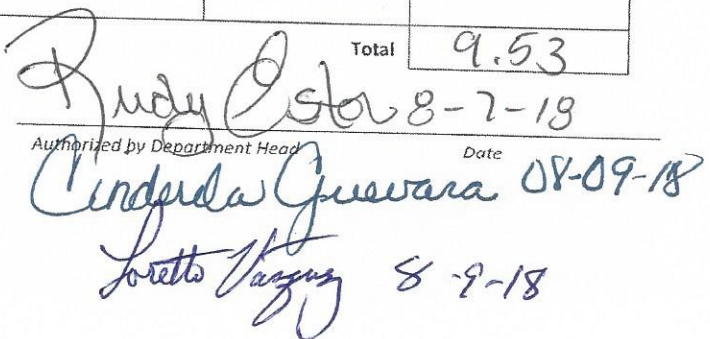 Total 9.53
Rudy Estor 8-7-18
Authorized by Department Head Date
Cinderela Guevara 08-09-18
Loretto Vasquez 8-9-18